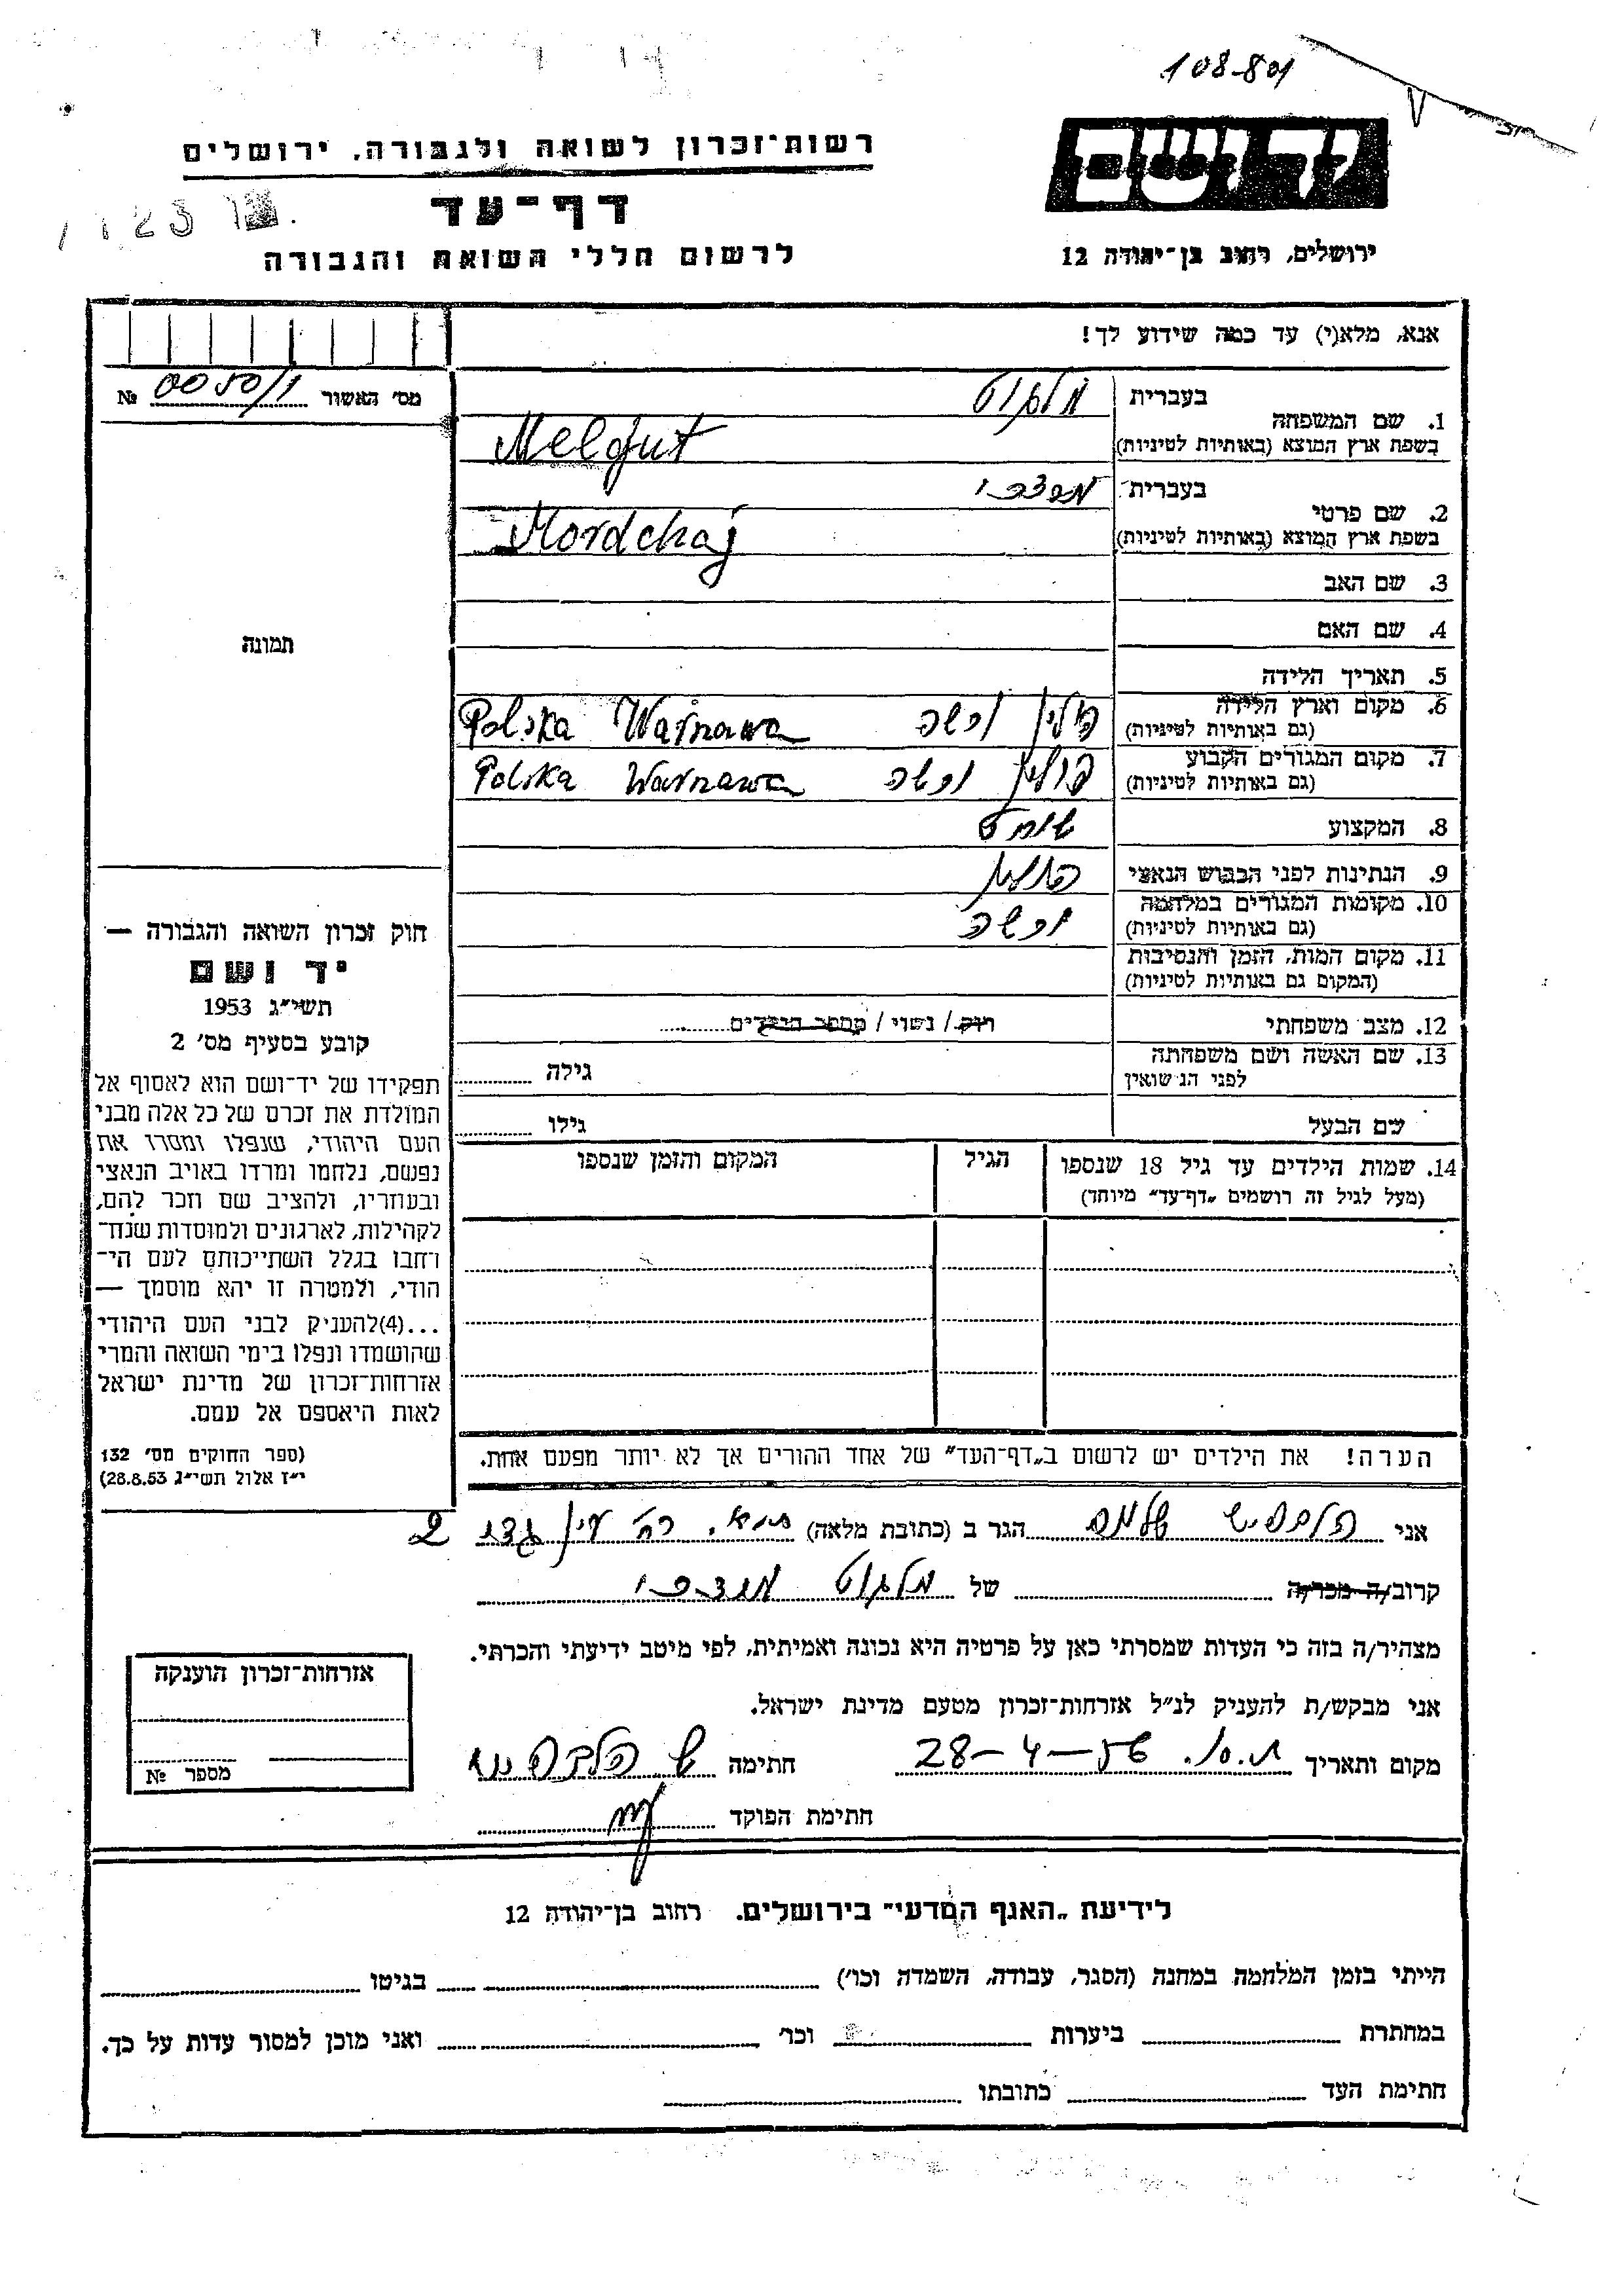 108-801
יד ושם
ירושלים, רחוב בן־יהודה 12
רשות־זכרון לשואה ולגבורה, ירושלים
דף־עד
לרשום חללי השואה והגבורה
אנא, מלא(י) עד כמה שידוע לך!
מס' האשור № 0050/1
1. שם המשפחה
בעברית מלגוט
בשפת ארץ המוצא (באותיות לטיניות) Melgut
2. שם פרטי
בעברית מרדכי
בשפת ארץ המוצא (באותיות לטיניות) Mordchaj
3. שם האב
4. שם האם
5. תאריך הלידה
6. מקום וארץ הלידה פולין ורשה Polska Warszawa
(גם באותיות לטיניות)
7. מקום המגורים הקבוע פולין ורשה Polska Warszawa
(גם באותיות לטיניות)
8. המקצוע
9. הנתינות לפני הכבוש הנאצי
10. מקומות המגורים במלחמה ורשה
(גם באותיות לטיניות)
11. מקום המות, הזמן והנסיבות
(המקום גם באותיות לטיניות)
12. מצב משפחתי רוק / נשוי / מספר הילדים
13. שם האשה ושם משפחתה
לפני הנישואין
גילה
שם הבעל גילו
14. שמות הילדים עד גיל 18 שנספו
(מעל לגיל זה רושמים „דף־עד” מיוחד)
הגיל
המקום והזמן שנספו
הערה! את הילדים יש לרשום ב„דף־העד” של אחד ההורים אך לא יותר מפעם אחת.
תמונה
חוק זכרון השואה והגבורה —
יד ושם
תשי״ג 1953
קובע בסעיף מס' 2
תפקידו של יד־ושם הוא לאסוף אל
המולדת את זכרם של כל אלה מבני
העם היהודי, שנפלו ומסרו את
נפשם, נלחמו ומרדו באויב הנאצי
ובעוזריו, ולהציב שם וזכר להם,
לקהילות, לארגונים ולמוסדות שנח־
רחבו בגלל השתייכותם לעם הי־
הודי, ולמטרה זו יהא מוסמך —
...(4)להעניק לבני העם היהודי
שהושמדו ונפלו בימי השואה והמרי
אזרחות־זכרון של מדינת ישראל
לאות היאספם אל עמם.
(ספר החוקים מס' 132
י״ז אלול תשי״ג 28.8.53)
אני הגר ב (כתובת מלאה) ת״א. רח' עין גדי 2
קרוב/ה מכר/ה של מלגוט מרדכי
מצהיר/ה בזה כי העדות שמסרתי כאן על פרטיה היא נכונה ואמיתית, לפי מיטב ידיעתי והכרתי.
אני מבקש/ת להעניק לנ״ל אזרחות־זכרון מטעם מדינת ישראל.
מקום ותאריך 28-4-56 חתימה
חתימת הפוקד
אזרחות־זכרון הוענקה
מספר №
לידיעת „האגף המדעי” בירושלים. רחוב בן־יהודה 12
הייתי בזמן המלחמה במחנה (הסגר, עבודה, השמדה וכו') בגיטו
במחתרת ביערות וכו' ואני מוכן למסור עדות על כך.
חתימת העד כתובתו